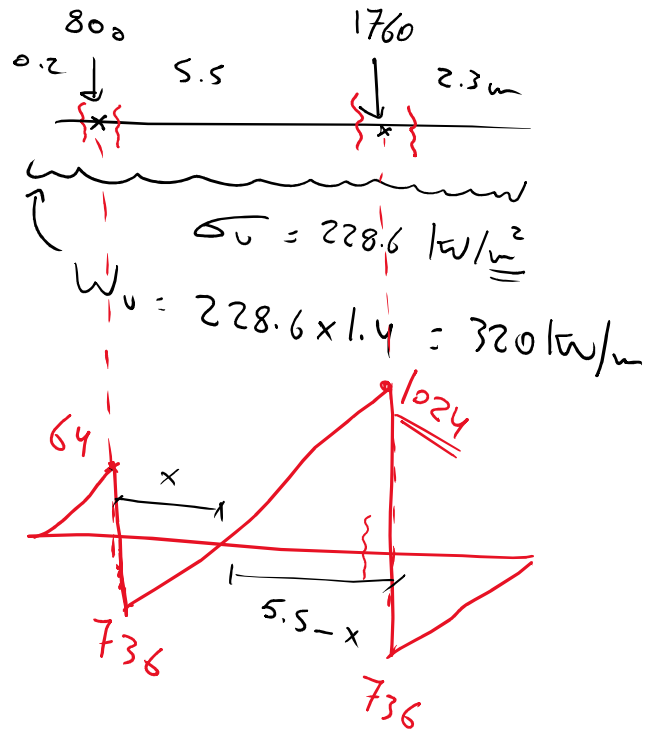 800 1760
0.2 5.5 2.3m
σu = 228.6 kN/m²
Wu = 228.6 x 1.4 = 320 kN/m
1024
64
x
5.5-x
736
736